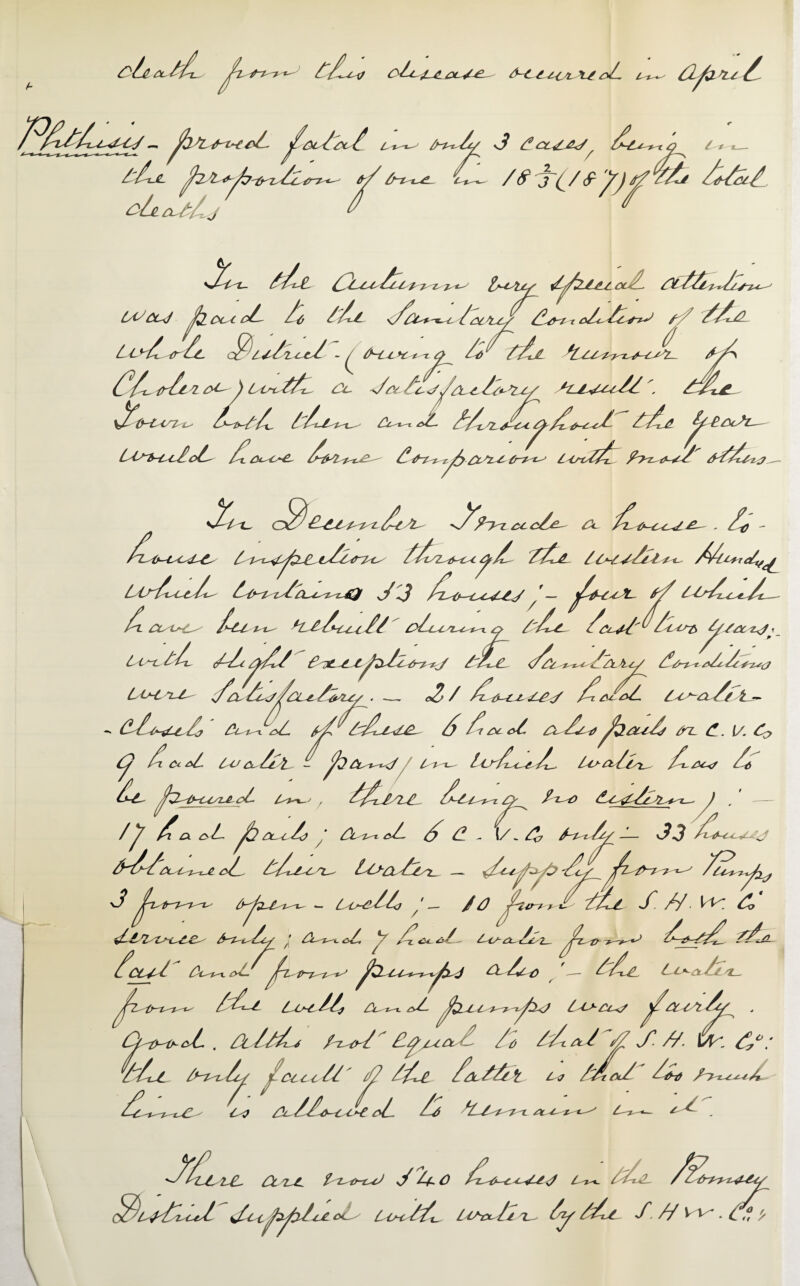 death from this disease occurred in April
Phthisis - proved fatal in only 3 Cases, being in
the proportion of one in 18⅔ (187) of the total
deaths
In the Autumn very special attention
was paid to the Sanitary Condition of the
whole District - (owing to the rumour of
Cholera) with a satisfactory result. The
Town both then and throughout the year
would have borne Comparison with most others -
In December I made a house - to -
house inspection through the Western Hundred
which contained 53 houses ; - four of which
have been rebuilt during the last two years ; -
with slight exceptions the Sanitary Conditions
were satisfactory. — 21 houses had water -
- closets and of these 6 had also pails or C. V. Co
9 had water - pans / in which water has to
be poured in, there being no cistern ) . —
17 had pails ; and 6 C. V. Co only — 33 houses
obtained their water - supply from Pumps
3 from open - wells ; - 10 from the S. H. W. Co
service only ; and 7 had water from both the
last and from pumps also ; - the water
from the wells and pumps was fairly .
good . altho not equal to that of S. H. W. Co :
the only fault of the latter is that too much
lime is allowed to remain in it .
There are now 540 houses in the Romsey
District supplied with water by the S. H W. Co ;